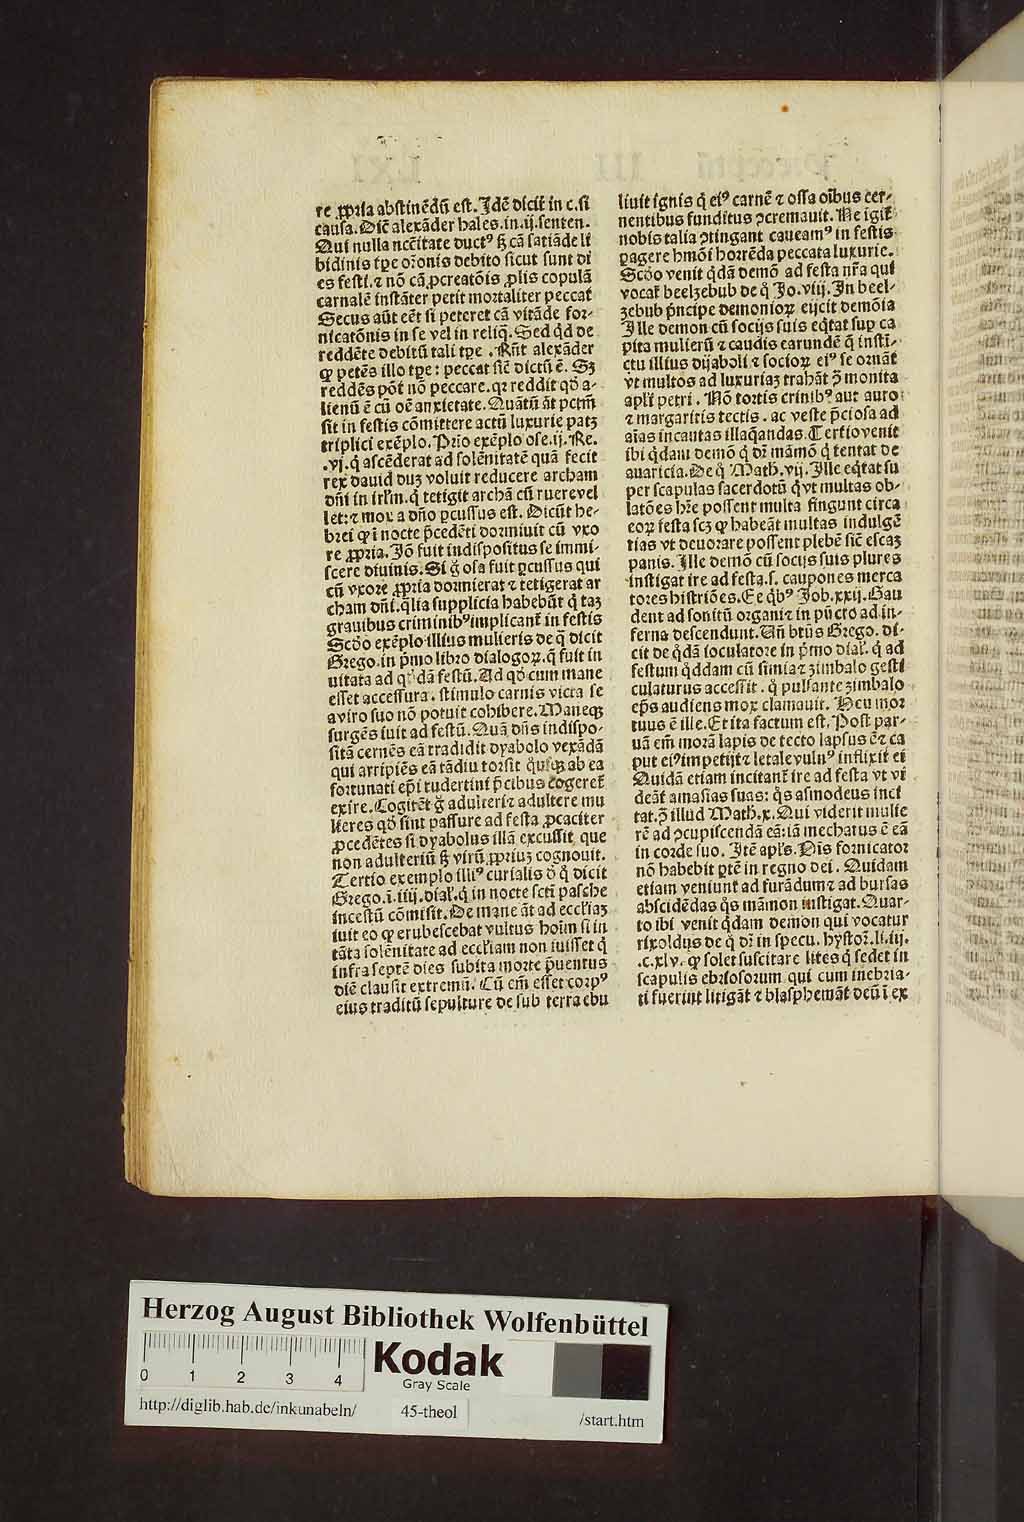 re ꝓpria abstinēdū est. Idē dicit̄ in c. si
causa. Dic̄ alexāder hales. in. ij. senten.
Qui nulla nc̄citate ductꝰ sꝫ cā satiāde li
bidinis tꝑe or̄onis debito sicut sunt di
es festi. ⁊ nō cā ꝓcreatōis ꝓlis copulā
carnalē instāter petit mortaliter peccat
Secus aūt eēt si peteret cā vitāde for-
nicatōnis in se vel in reliq̄. Sed qd̄ de
reddēte debitū tali tꝑe. Rn̄t alexāder
ꝙ petēs illo tꝑe: peccat sic̄ dictū ē. Sꝫ
reddēs pōt nō peccare. qꝛ reddit qd̄ a-
lienū ē cū oē anxietate. Quātū āt pctm̄
sit in festis cōmittere actū luxurie patꝫ
triplici exēplo. Prio exēplo ose. ij. Re.
.vj. q̄ ascēderat ad solēnitatē quā fecit
rex dauid duꝫ voluit reducere archam
dn̄i in irl̄m. q̄ tetigit archā cū ruere vel
let: ⁊ mox a dn̄o ꝑcussus est. Dicūt he-
brei ꝙ i nocte p̄cedēti dormiuit cū vxo
re ꝓpria. Iō fuit indispositus se immi-
scere diuinis. Si g̊ osa fuit ꝑcussus qui
cū vxore ꝓpria dormierat ⁊ tetigerat ar
cham dn̄i. q̄lia supplicia habebūt q̄ taꝫ
grauibus criminibꝰ implicant̄ in festis
Scd̄o exēplo illius mulieris de q̄ dicit
Grego. in p̄mo libro dialogoꝝ. q̄ fuit in
uitata ad qd̄dā festū. Ad qd̄ cum mane
esset accessura. stimulo carnis victa se
a viro suo nō potuit cohibere. Maneqꝫ
surgēs iuit ad festū. Quā dn̄s indispo-
sitā cernēs eā tradidit dyabolo vexādā
qui arripiēs eā tādiu torsit q̄usqꝫ ab ea
fortunati ep̄i tudertini p̄cibus cogeret̄
exire. Cogitēt g̊ adulteri ⁊ adultere mu
lieres qd̄ sint passure ad festa ꝓcaciter
ꝓcedētes si dyabolus illā excussit, que
non adulteriū sꝫ virū ꝓpriuꝫ cognouit.
Tertio exemplo illiꝰ curialis ð q̄ dicit
Grego. ī. iiij. dial̄. q̄ in nocte sc̄ti pasche
incestū cōmisit. De mane āt ad eccl̄iaꝫ
iuit eo ꝙ erubescebat vultus hoīm si in
tāta solēnitate ad eccl̄iam non iuisset q̄
infra septē dies subita morte p̄uentus
diē clausit extremū. Cū em̄ esset corpꝰ
eius traditū sepulture de sub terra ebu
liuit ignis q̄ eiꝰ carnē ⁊ ossa oībus cer-
nentibus funditus ꝯcremauit. Ne igit̄
nobis talia ꝯtingant caueamꝰ in festis
ꝑagere hmōi horrēda peccata luxurie.
Scd̄o venit qd̄ā demō ad festa nr̄a qui
vocat̄ beelzebub de q̊ Jo. viij. In beel-
zebub p̄ncipe demonioꝝ eijcit demōia
Ille demon cū socijs suis eq̄tat sup ca
pita mulierū ⁊ caudis earundē q̄ insti-
ctu illius dijaboli ⁊ socioꝝ eiꝰ se ornāt
vt multos ad luxuriaꝫ trahāt ꝯ̄ monita
apl̄i petri. Nō tortis crinibꝰ aut auro
⁊ margaritis tectis. ac veste p̄ciosa ad
aīas incautas illaq̄andas. Tertio venit
ibi q̄dam demō q̄ dr̄ māmō q̄ tentat de
auaricia. De q̊ Math. vij. Ille eq̄tat su
per scapulas sacerdotū q̊ vt multas ob-
latōes hr̄e possent multa fingunt circa
eoꝝ festa scꝫ ꝙ habeāt multas indulgē
tias vt deuorare possent plebē sic̄ escaꝫ
panis. Ille demō cū socijs suis plures
instigat ire ad festa. s. caupones merca
tores histriōes. Ee qb̊ꝰ Job. xxij. Gau
dent ad sonitū organi ⁊ in pūcto ad in-
ferna descendunt. Uñ btūs Grego. di-
cit de qd̄ā ioculatore in p̄mo dial̄. q̄ ad
festum q̊ddam cū simia ⁊ zimbalo gesti
culaturus accessit. q̊ pulsante zimbalo
ep̄s audiens mox clamauit. Heu mor
tuus ē ille. Et ita factum est. Post par-
uā em̄ morā lapis de tecto lapsus ē ⁊ ca
put eiꝰ impetijt ⁊ letale vulnꝰ inflixit ei
Quidā etiam incitant̄ ire ad festa vt vi
deāt amasias suas: q̊s asmodeus inci
tat. ꝯ̄ illud Math. x. Qui viderit mulie
rē ad ꝯcupiscendā eā: iā mechatus ē eā
in corde suo. Itē apl̄s. Ois fornicator
nō habebit ꝑtē in regno dei. Quidam
etiam veniunt ad furādum ⁊ ad bursas
abscidēdas q̊s māmon instigat. Quar-
to ibi venit q̄dam demon qui vocatur
rixoldus de q̊ dr̄ in specu. hystor̄. li. iij.
.c. xlv. ꝙ solet suscitare lites q̄ sedet in
scapulis ebriosorum qui cum inebria-
ti fuerint litigāt ⁊ blasphemāt deū ī ex
Herzog August Bibliothek Wolfenbüttel
0 1 2 3 4
Kodak
Gray Scale
http://diglib.hab.de/inkunabeln/ 45-theol /start.htm